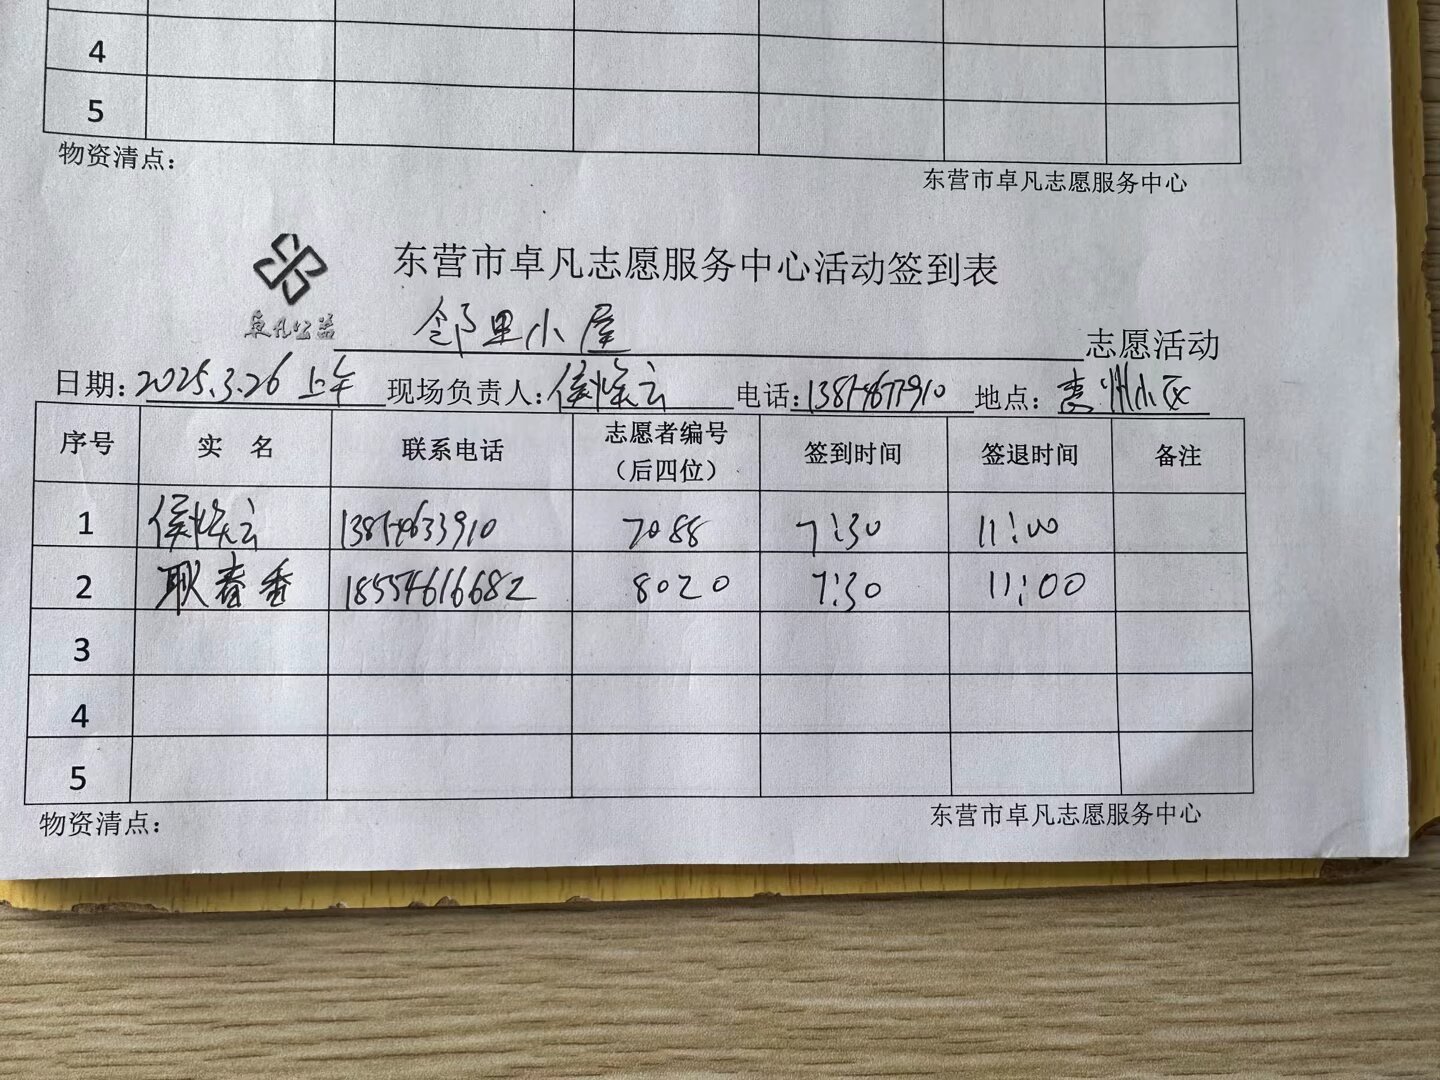 4
5
物资清点：
东营市卓凡志愿服务中心
东营市卓凡志愿服务中心活动签到表
卓凡公益
邻里小屋 志愿活动
日期：2025.3.26 上午 现场负责人：侯焕云 电话： 地点：惠州小区
序号 实 名 联系电话 志愿者编号（后四位） 签到时间 签退时间 备注
1 侯焕云 7088 7:30 11:00
2 耿春香 18554616682 8020 7:30 11:00
3
4
5
物资清点：
东营市卓凡志愿服务中心